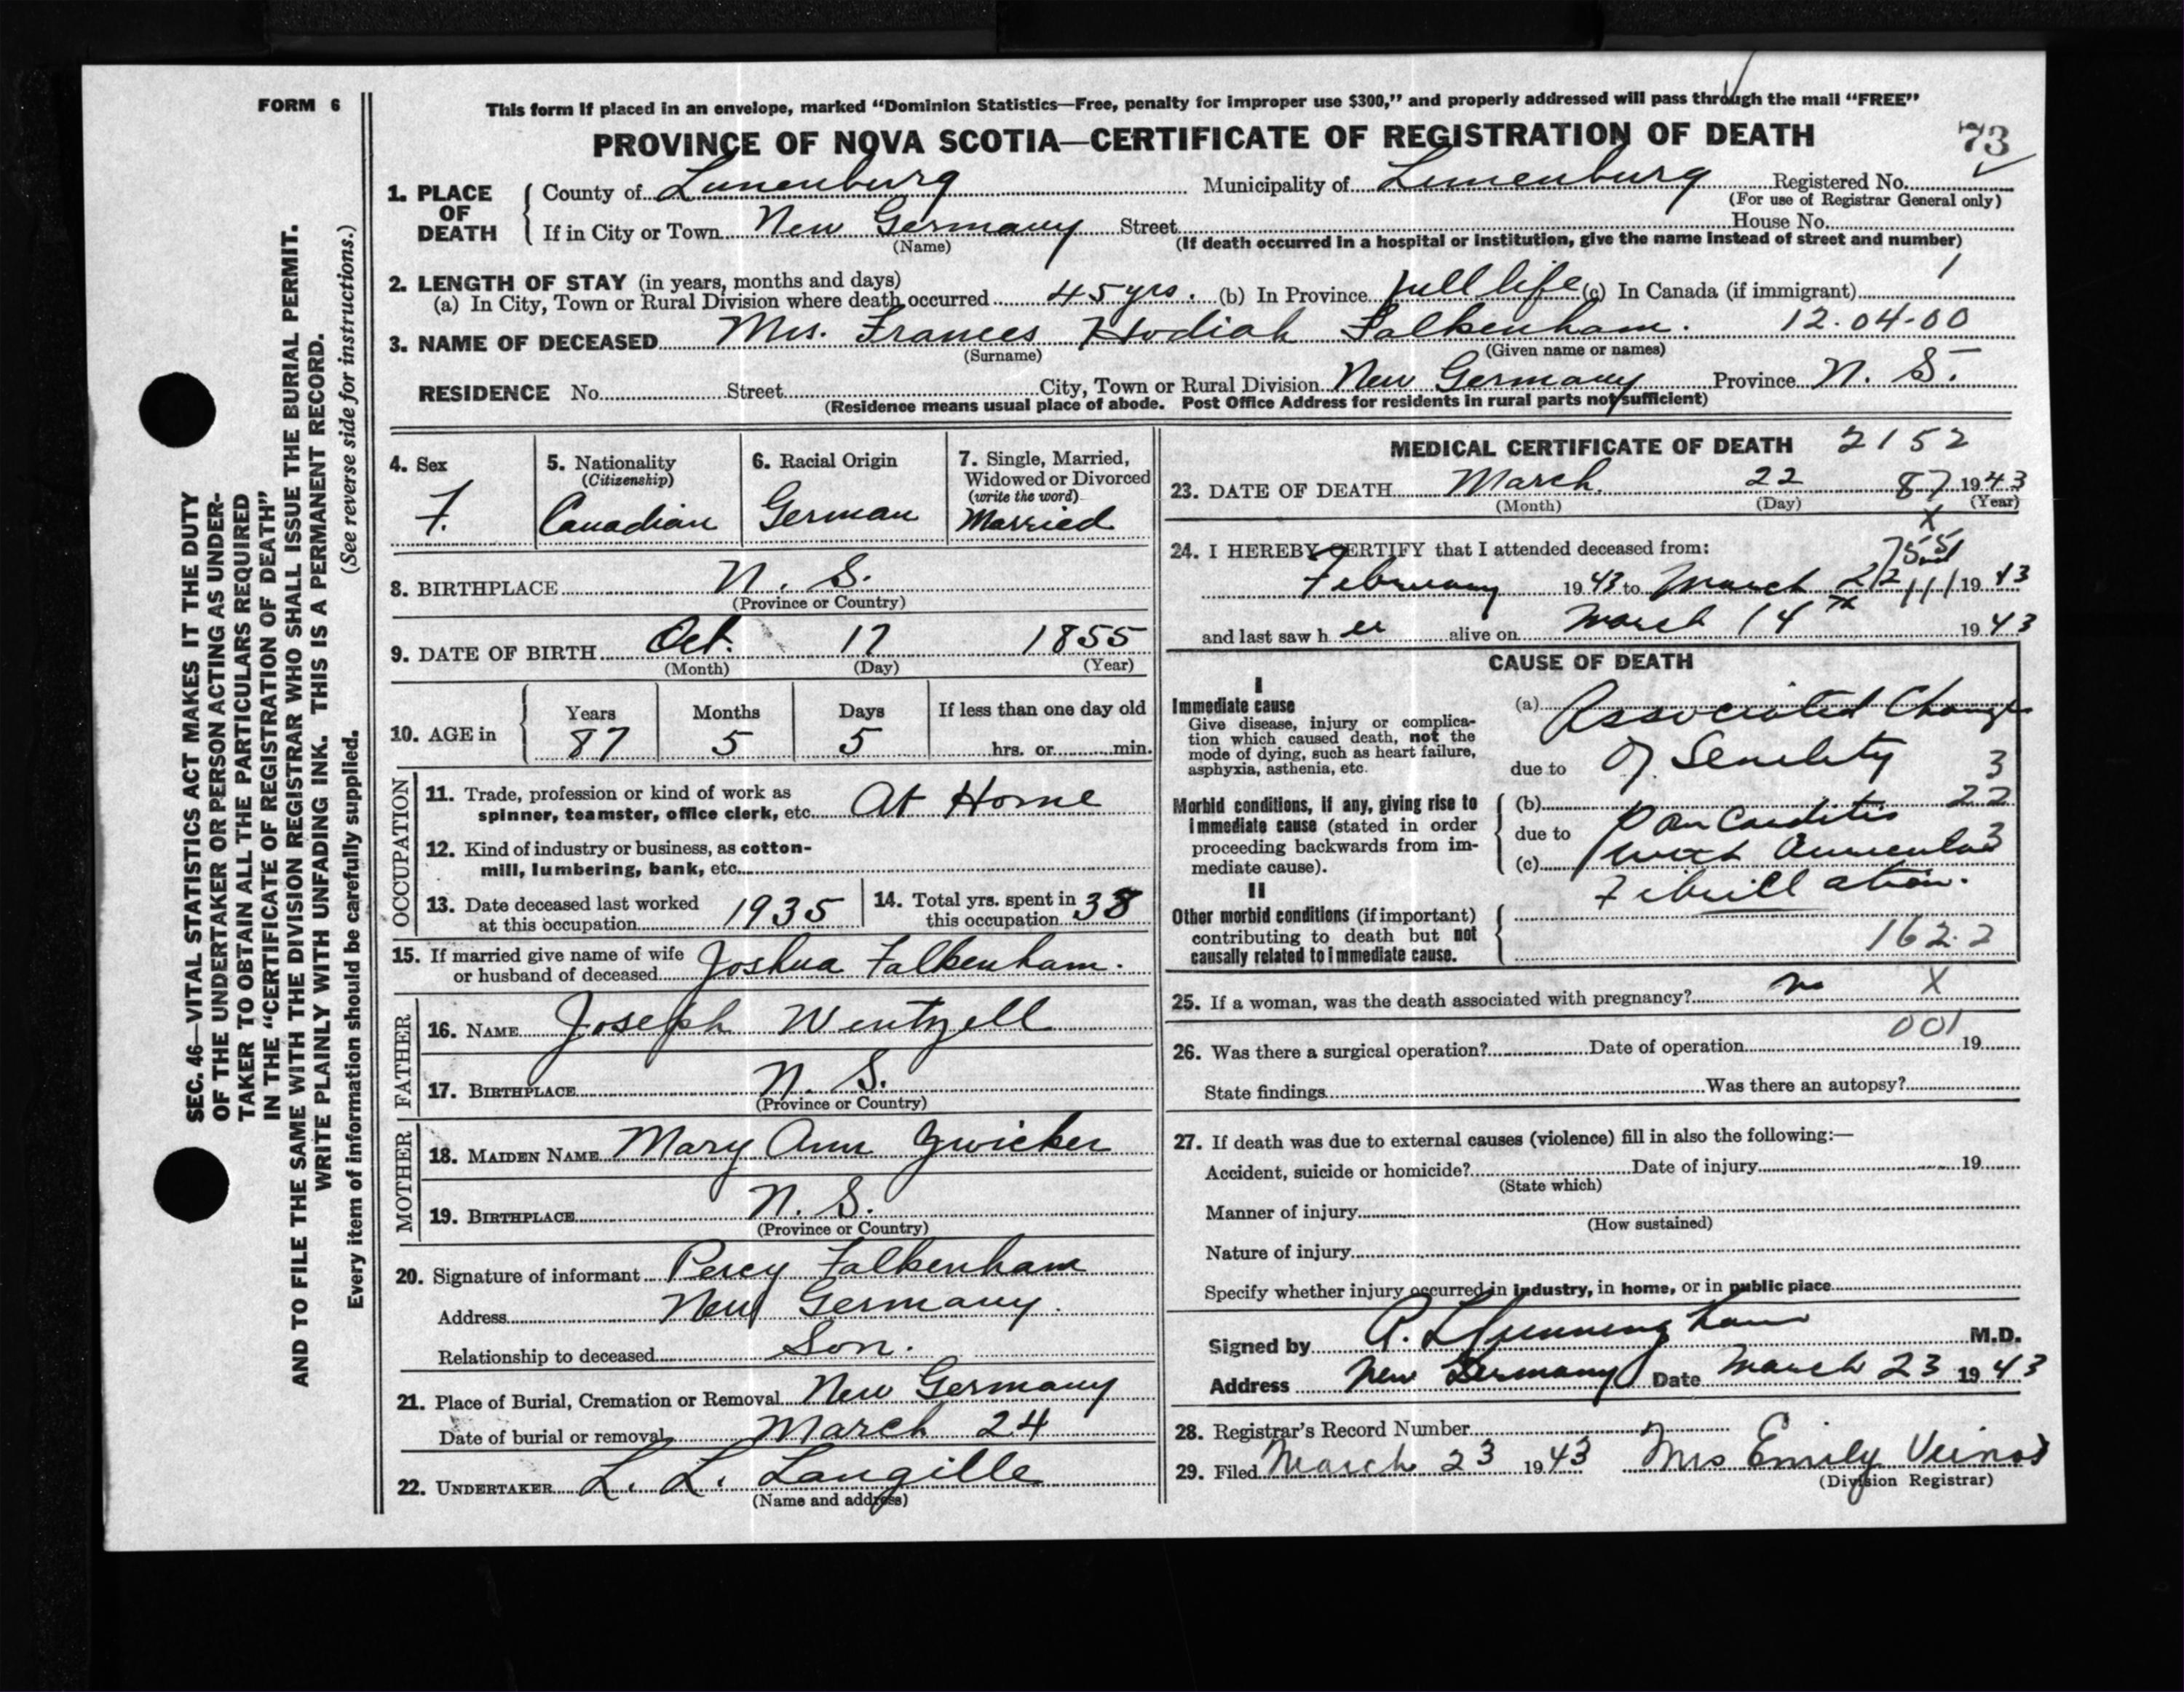 FORM 6
This form if placed in an envelope, marked “Dominion Statistics—Free, penalty for improper use $300,” and properly addressed will pass through the mail “FREE”
PROVINCE OF NOVA SCOTIA—CERTIFICATE OF REGISTRATION OF DEATH
73
1. PLACE OF DEATH
County of Lunenburg Municipality of Lunenburg Registered No.
(For use of Registrar General only)
If in City or Town New Germany Street House No.
(Name) (If death occurred in a hospital or institution, give the name instead of street and number)
2. LENGTH OF STAY (in years, months and days) 1
(a) In City, Town or Rural Division where death occurred 45 yrs. (b) In Province full life (c) In Canada (if immigrant)
3. NAME OF DECEASED Mrs. Frances Hodiah Falkenham. 12.04-00
(Surname) (Given name or names)
RESIDENCE No. Street City, Town or Rural Division New Germany Province N. S.
(Residence means usual place of abode. Post Office Address for residents in rural parts not sufficient)
SEC. 46—VITAL STATISTICS ACT MAKES IT THE DUTY
OF THE UNDERTAKER OR PERSON ACTING AS UNDER-
TAKER TO OBTAIN ALL THE PARTICULARS REQUIRED
IN THE “CERTIFICATE OF REGISTRATION OF DEATH”
AND TO FILE THE SAME WITH THE DIVISION REGISTRAR WHO SHALL ISSUE THE BURIAL PERMIT.
WRITE PLAINLY WITH UNFADING INK. THIS IS A PERMANENT RECORD.
(See reverse side for instructions.)
Every item of information should be carefully supplied.
4. Sex
F.
5. Nationality
(Citizenship)
Canadian
6. Racial Origin
German
7. Single, Married,
Widowed or Divorced
(write the word)
Married
8. BIRTHPLACE N. S.
(Province or Country)
9. DATE OF BIRTH Oct. 17 1855
(Month) (Day) (Year)
10. AGE in
Years Months Days If less than one day old
87 5 5 hrs. or min.
OCCUPATION
11. Trade, profession or kind of work as
spinner, teamster, office clerk, etc. At Home
12. Kind of industry or business, as cotton-
mill, lumbering, bank, etc.
13. Date deceased last worked
at this occupation 1935
14. Total yrs. spent in
this occupation 38
15. If married give name of wife
or husband of deceased Joshua Falkenham.
FATHER
16. NAME Joseph Wentzell
17. BIRTHPLACE N. S.
(Province or Country)
MOTHER
18. MAIDEN NAME Mary Ann Zwicker
19. BIRTHPLACE N. S.
(Province or Country)
20. Signature of informant Percy Falkenham
Address New Germany.
Relationship to deceased Son.
21. Place of Burial, Cremation or Removal New Germany
Date of burial or removal March 24
22. UNDERTAKER L. L. Langille
(Name and address)
MEDICAL CERTIFICATE OF DEATH 2152
23. DATE OF DEATH March 22 87 1943
(Month) (Day) (Year)
X
24. I HEREBY CERTIFY that I attended deceased from:
February 1943 to March 22 1943
and last saw her alive on March 14th 1943
CAUSE OF DEATH
I
Immediate cause
Give disease, injury or complica-
tion which caused death, not the
mode of dying, such as heart failure,
asphyxia, asthenia, etc.
(a) Associated Changes
due to Of Senility 3
Morbid conditions, if any, giving rise to
immediate cause (stated in order
proceeding backwards from im-
mediate cause).
(b) 22
due to Pancarditis
(c) with Auricular 3
Fibrillation.
II
Other morbid conditions (if important)
contributing to death but not
causally related to immediate cause.
162.2
25. If a woman, was the death associated with pregnancy? no X
001
26. Was there a surgical operation? Date of operation 19
State findings Was there an autopsy?
27. If death was due to external causes (violence) fill in also the following:—
Accident, suicide or homicide? Date of injury 19
(State which)
Manner of injury
(How sustained)
Nature of injury
Specify whether injury occurred in industry, in home, or in public place
Signed by M.D.
Address New Germany Date March 23 1943
28. Registrar's Record Number
29. Filed March 23 1943 Mrs Emily Veinot
(Division Registrar)